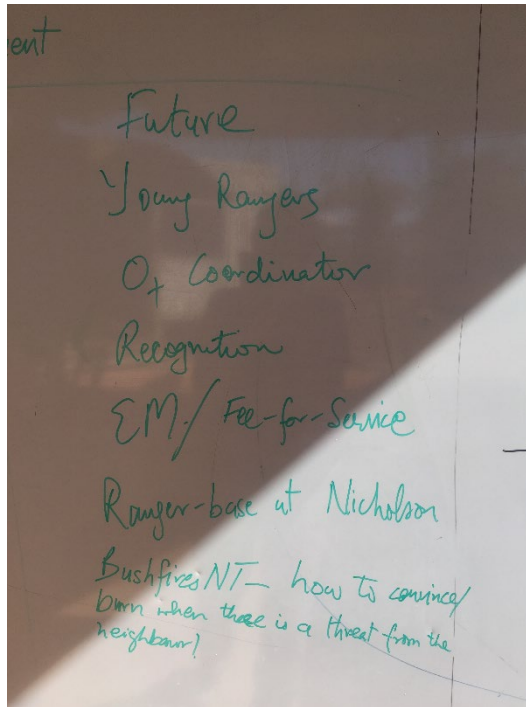 ent
Future
Young Rangers
O+ Coordinator
Recognition
EM/ Fee-for-Service
Ranger-base at Nicholson
BushfiresNT – how to convince/
burn when there is a threat from the
neighbour?